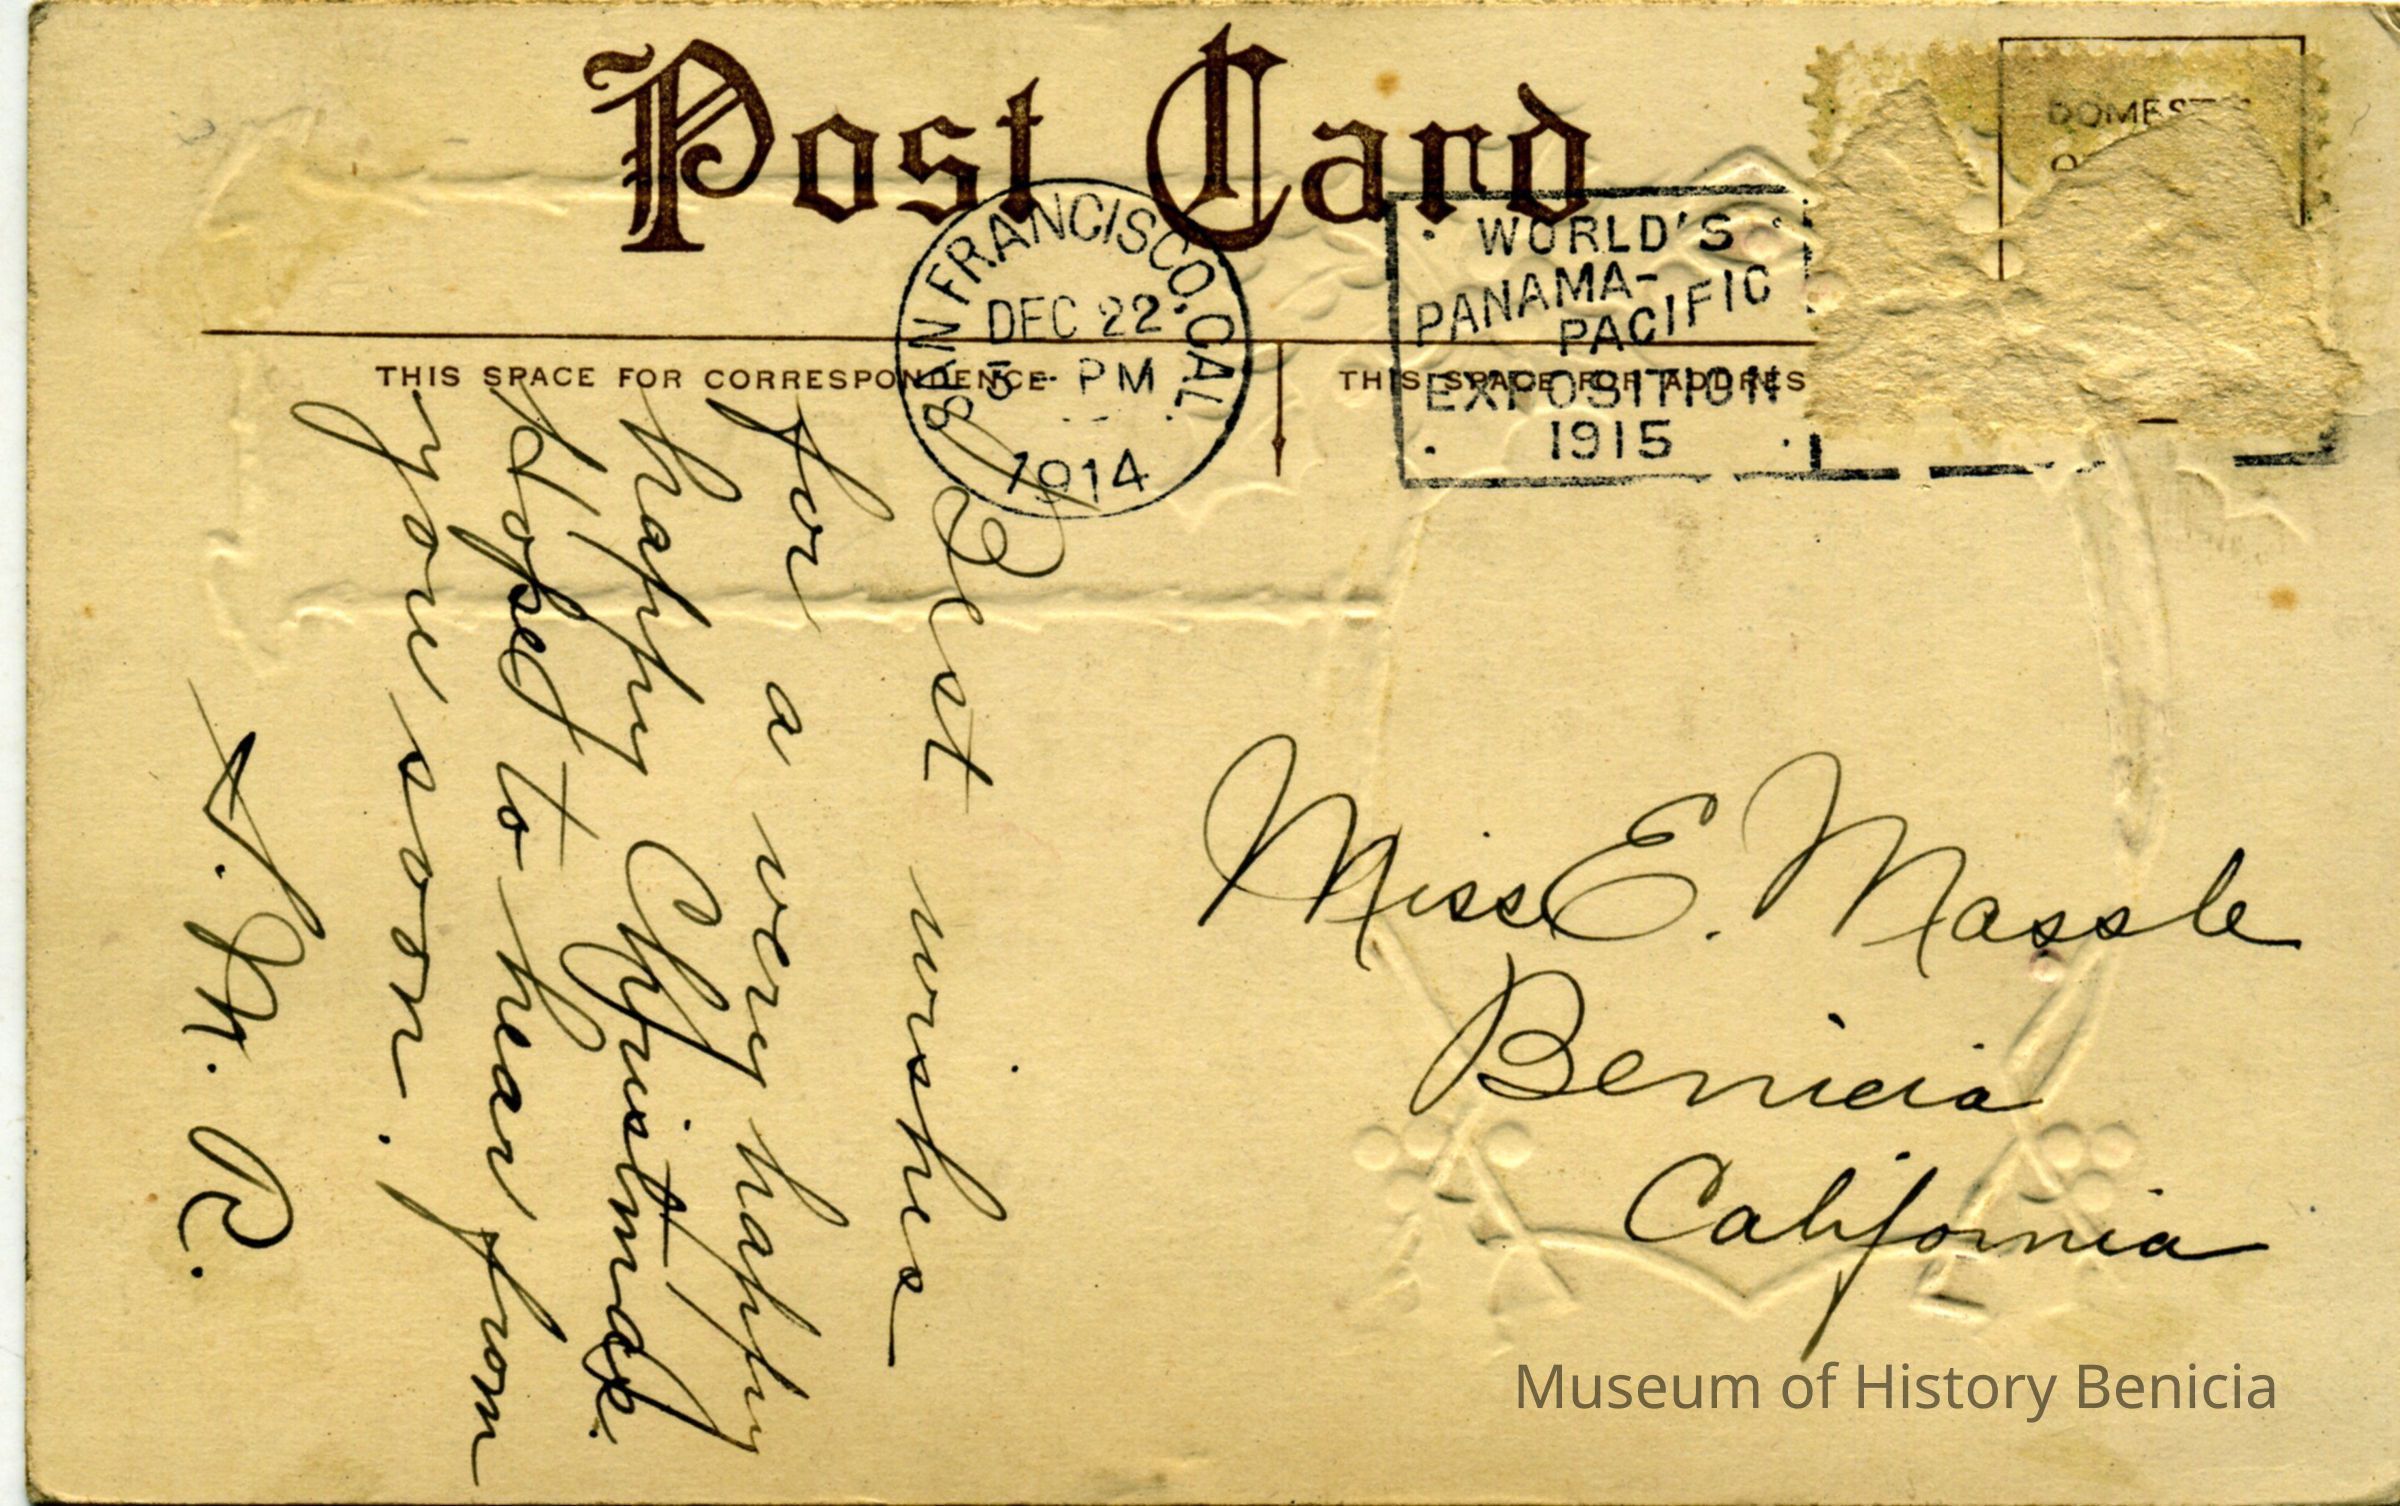 Post Card
SAN FRANCISCO, CAL.
DEC 22
5 - PM
1914
WORLD'S
PANAMA-
PACIFIC
EXPOSITION
1915
THIS SPACE FOR CORRESPONDENCE
THIS SPACE FOR ADDRES
Best wishes
for a very happy
happy Christmas.
Hope to hear from
you soon.
S. M. R.
Miss E. Massle
Benicia
California
Museum of History Benicia